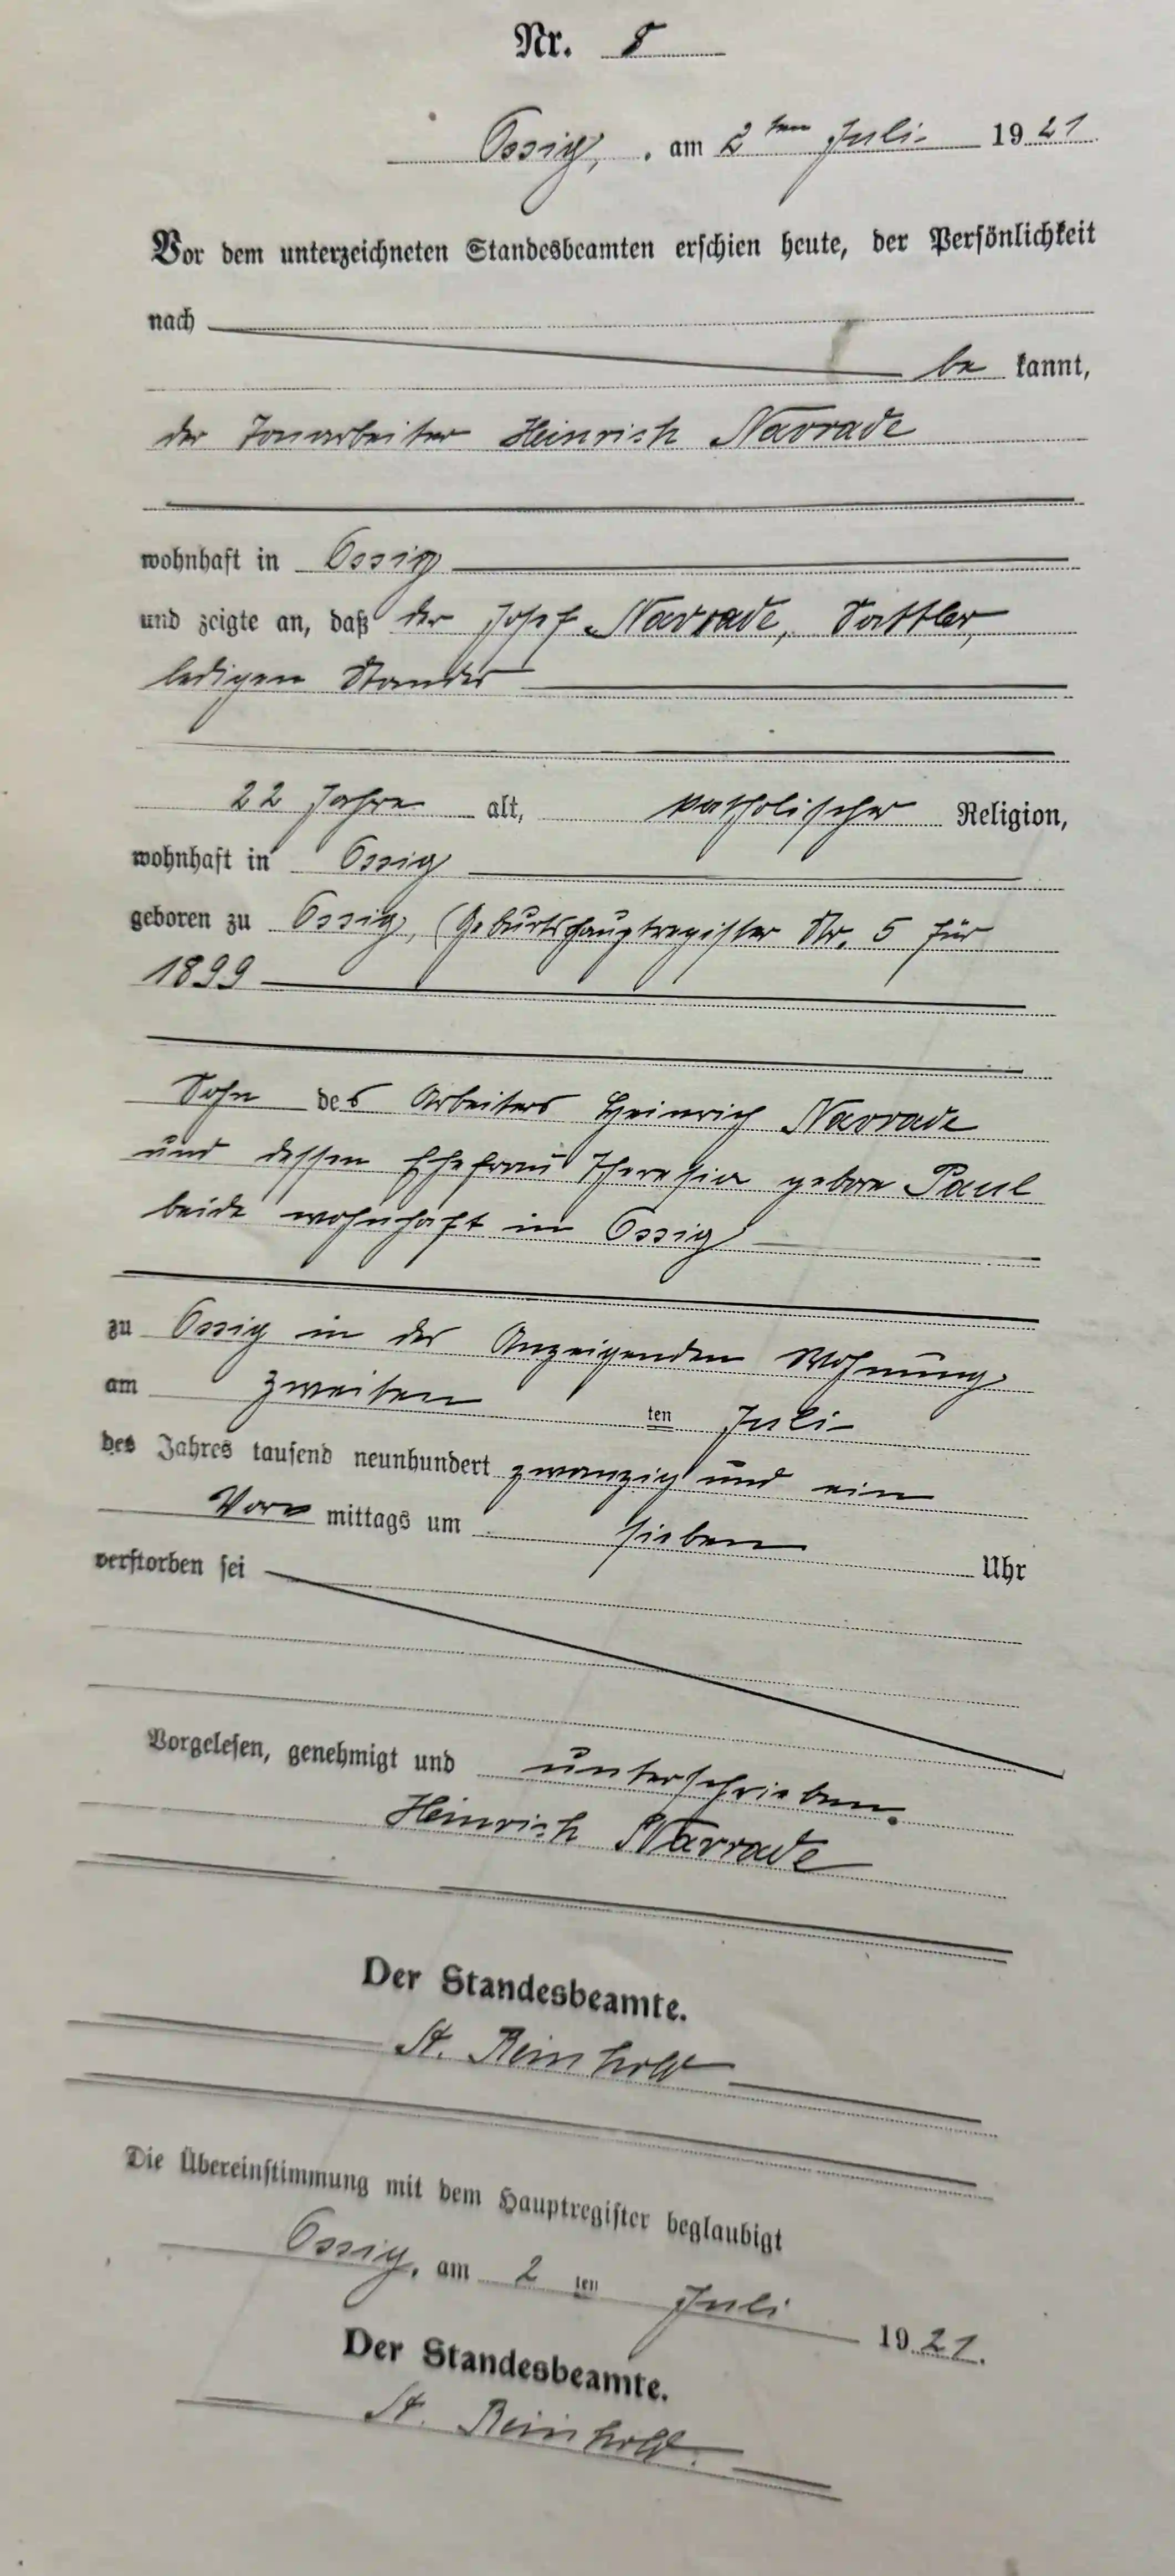 Nr. 8
Ossig, , am 2ten Juli 1921
Vor dem unterzeichneten Standesbeamten erschien heute, der Persönlichkeit
nach
be kannt,
der Tonarbeiter Heinrich Navrade
wohnhaft in Ossig
und zeigte an, daß der Josef Navrade, Sattler,
ledigen Standes
22 Jahre alt, katholischer Religion,
wohnhaft in Ossig
geboren zu Ossig, (Geburtshauptregister Nr. 5 für
1899
Sohn des Arbeiters Heinrich Navrade
und dessen Ehefrau Theresia geborne Paul
beide wohnhaft in Ossig
zu Ossig in der Anzeigenden Wohnung
am zweiten ten Juli
des Jahres tausend neunhundert zwanzig und ein
Vor mittags um sieben Uhr
verstorben sei
Vorgelesen, genehmigt und unterschrieben.
Heinrich Navrade
Der Standesbeamte.
St. Reinhold
Die Übereinstimmung mit dem Hauptregister beglaubigt
Ossig, am 2 ten Juli 1921.
Der Standesbeamte.
St. Reinhold.